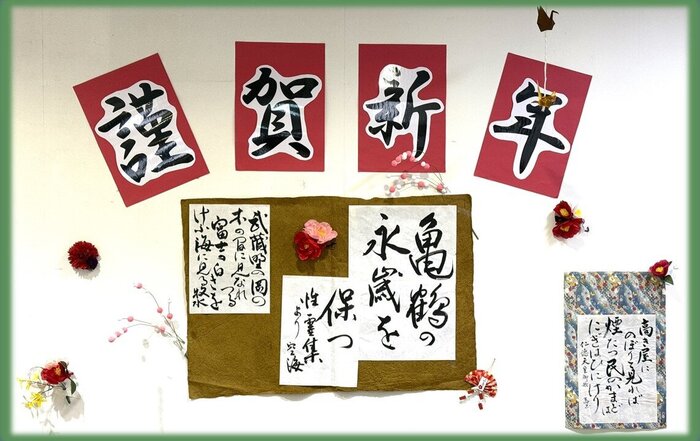 謹賀新年
亀鶴の
永歳を
保つ
性霊集
より 空海
武蔵野の岡の
木の間に見なれ
つる
富士の白きを
けふ海に見る 牧水
高き屋に
のぼりて見れば
煙たつ民のかまどは
にぎはひにけり
仁徳天皇御製